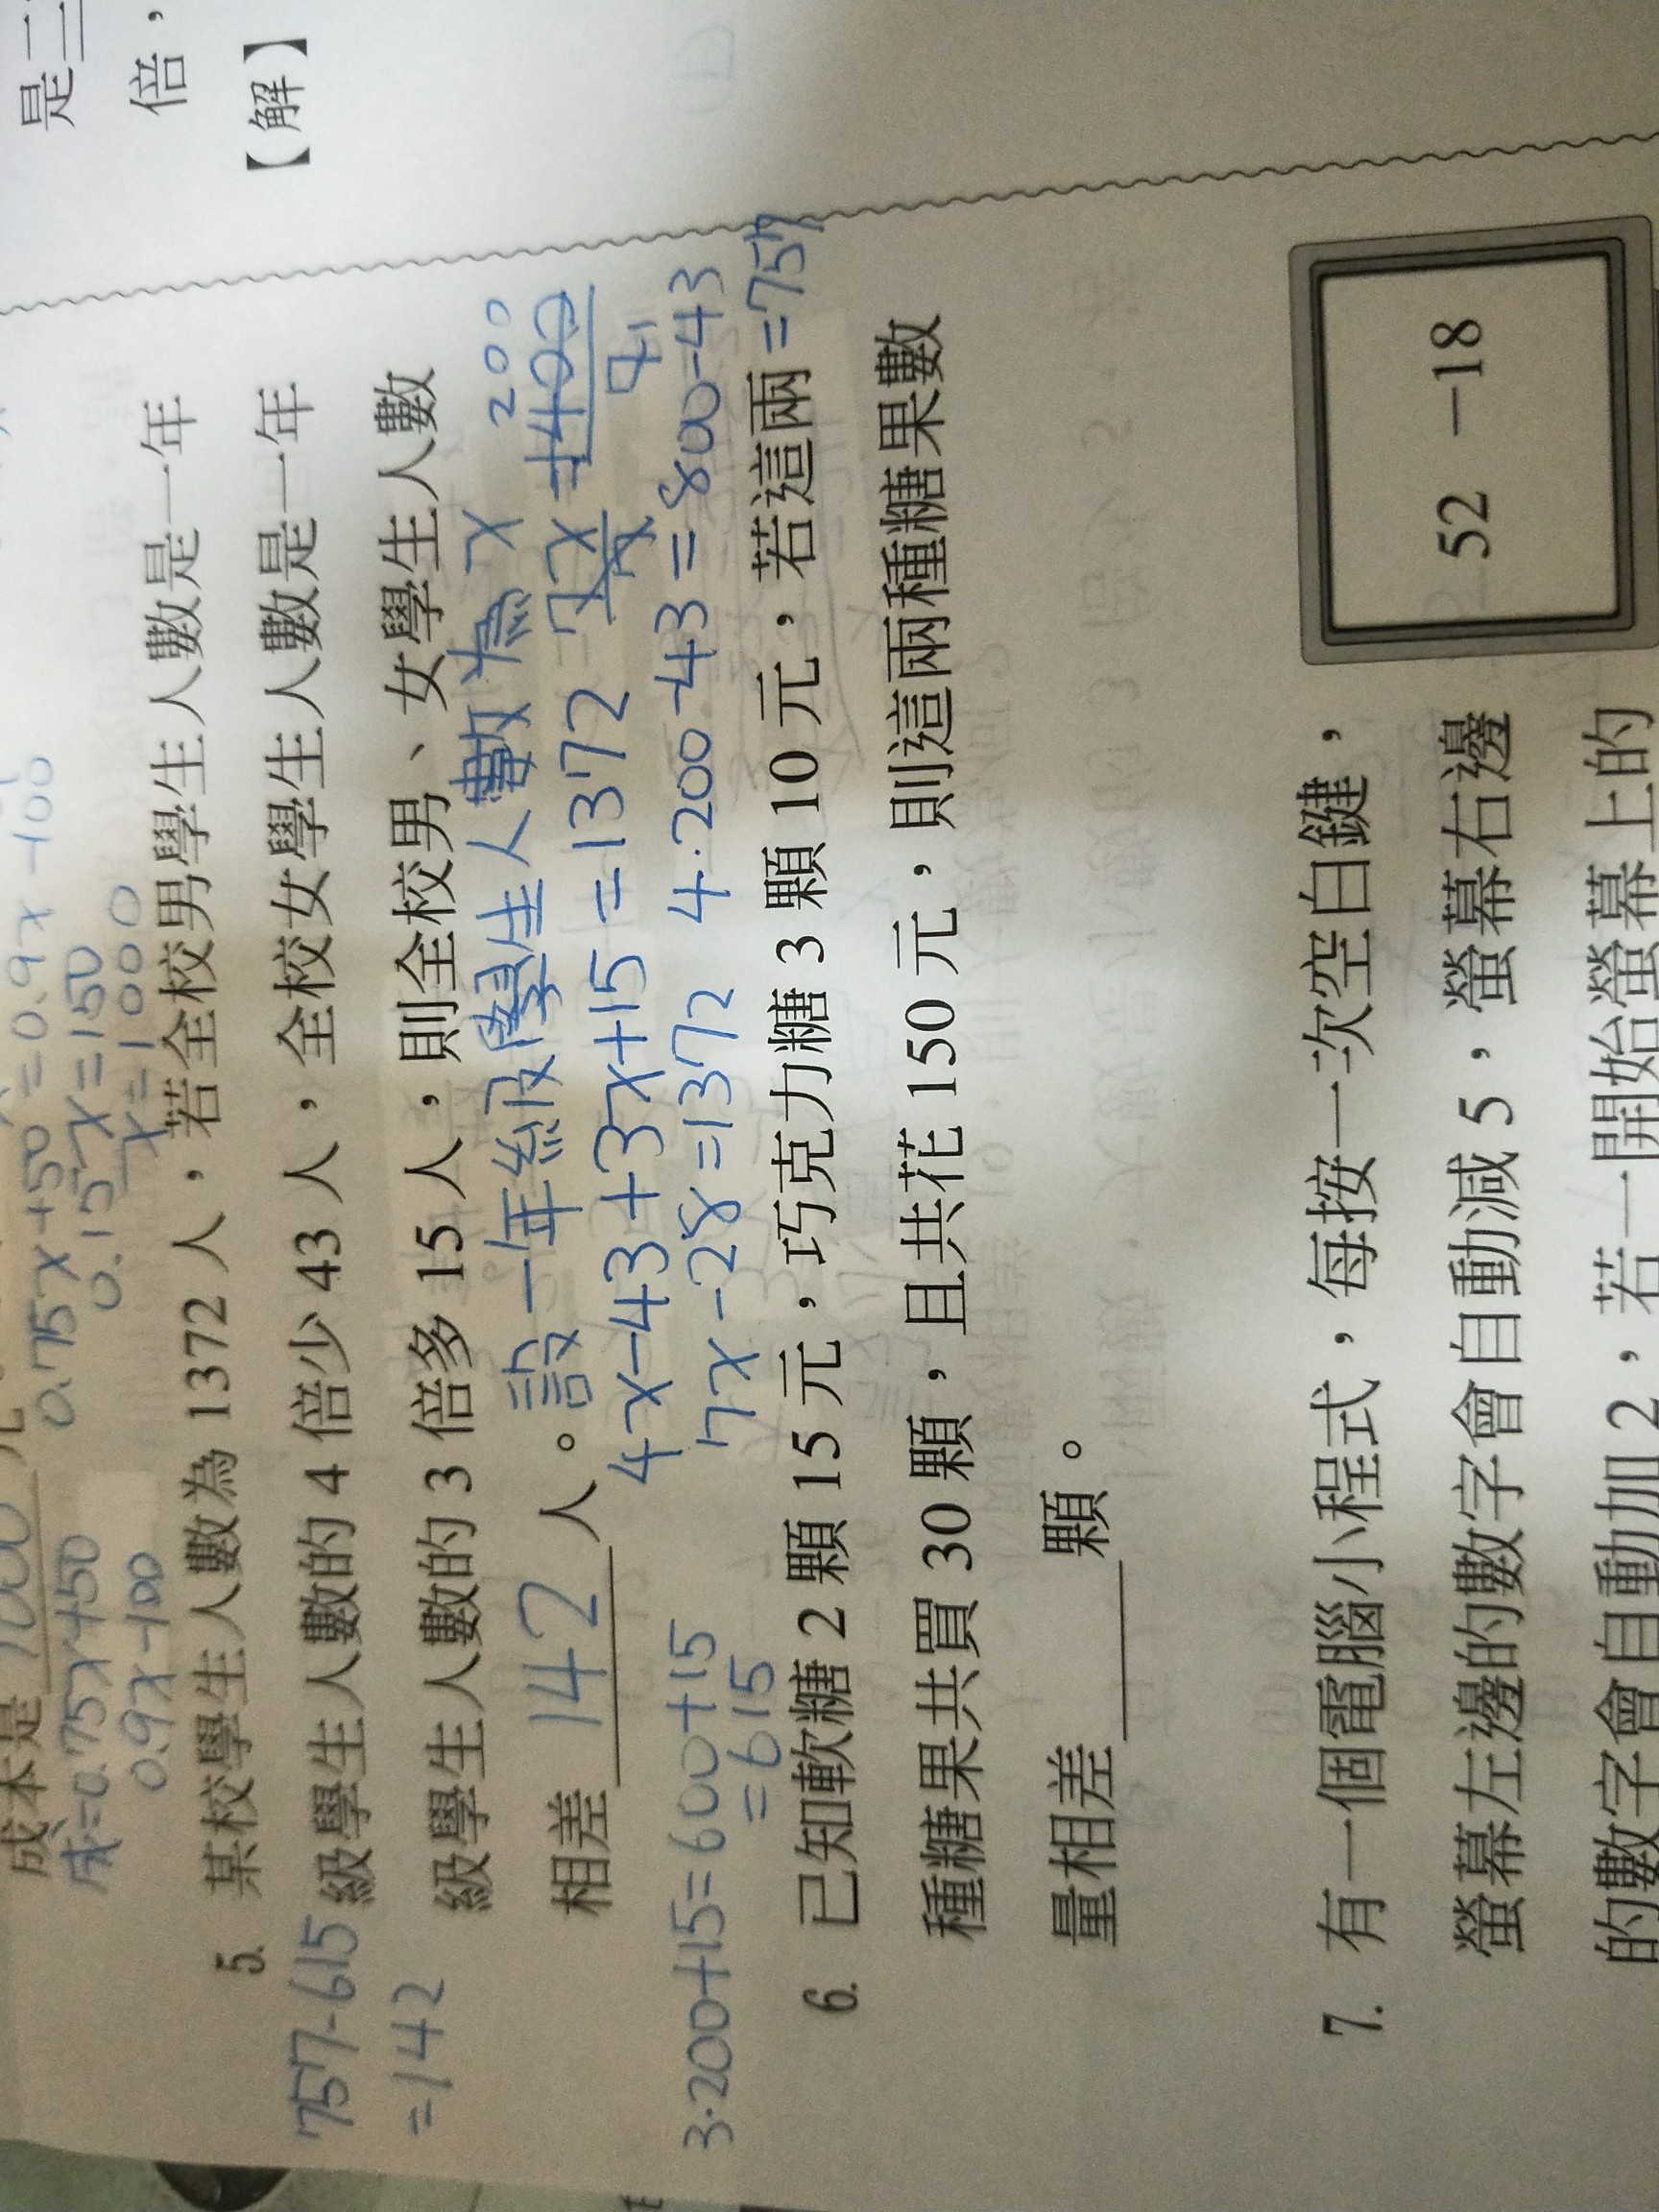 成本是 1000 元
成=0.75x+50
0.9x-100
0.75x+50=0.9x-100
0.15x=150
x=1000
5. 某校學生人數為 1372 人,若全校男學生人數是一年
級學生人數的 4 倍少 43 人,全校女學生人數是一年
級學生人數的 3 倍多 15 人,則全校男、女學生人數
相差 142 人。
757-615
=142
設一年級學生人數為x
4x-43+3x+15=1372
7x-28=1372
7x=1400
200
4·200-43=800-43
=757
3·200+15=600+15
=615
6. 已知軟糖 2 顆 15 元,巧克力糖 3 顆 10 元,若這兩
種糖果共買 30 顆,且共花 150 元,則這兩種糖果數
量相差 顆。
7. 有一個電腦小程式,每按一次空白鍵,
螢幕左邊的數字會自動減 5,螢幕右邊
的數字會自動加 2,若一開始螢幕上的
52 -18
是二
倍,
【解】